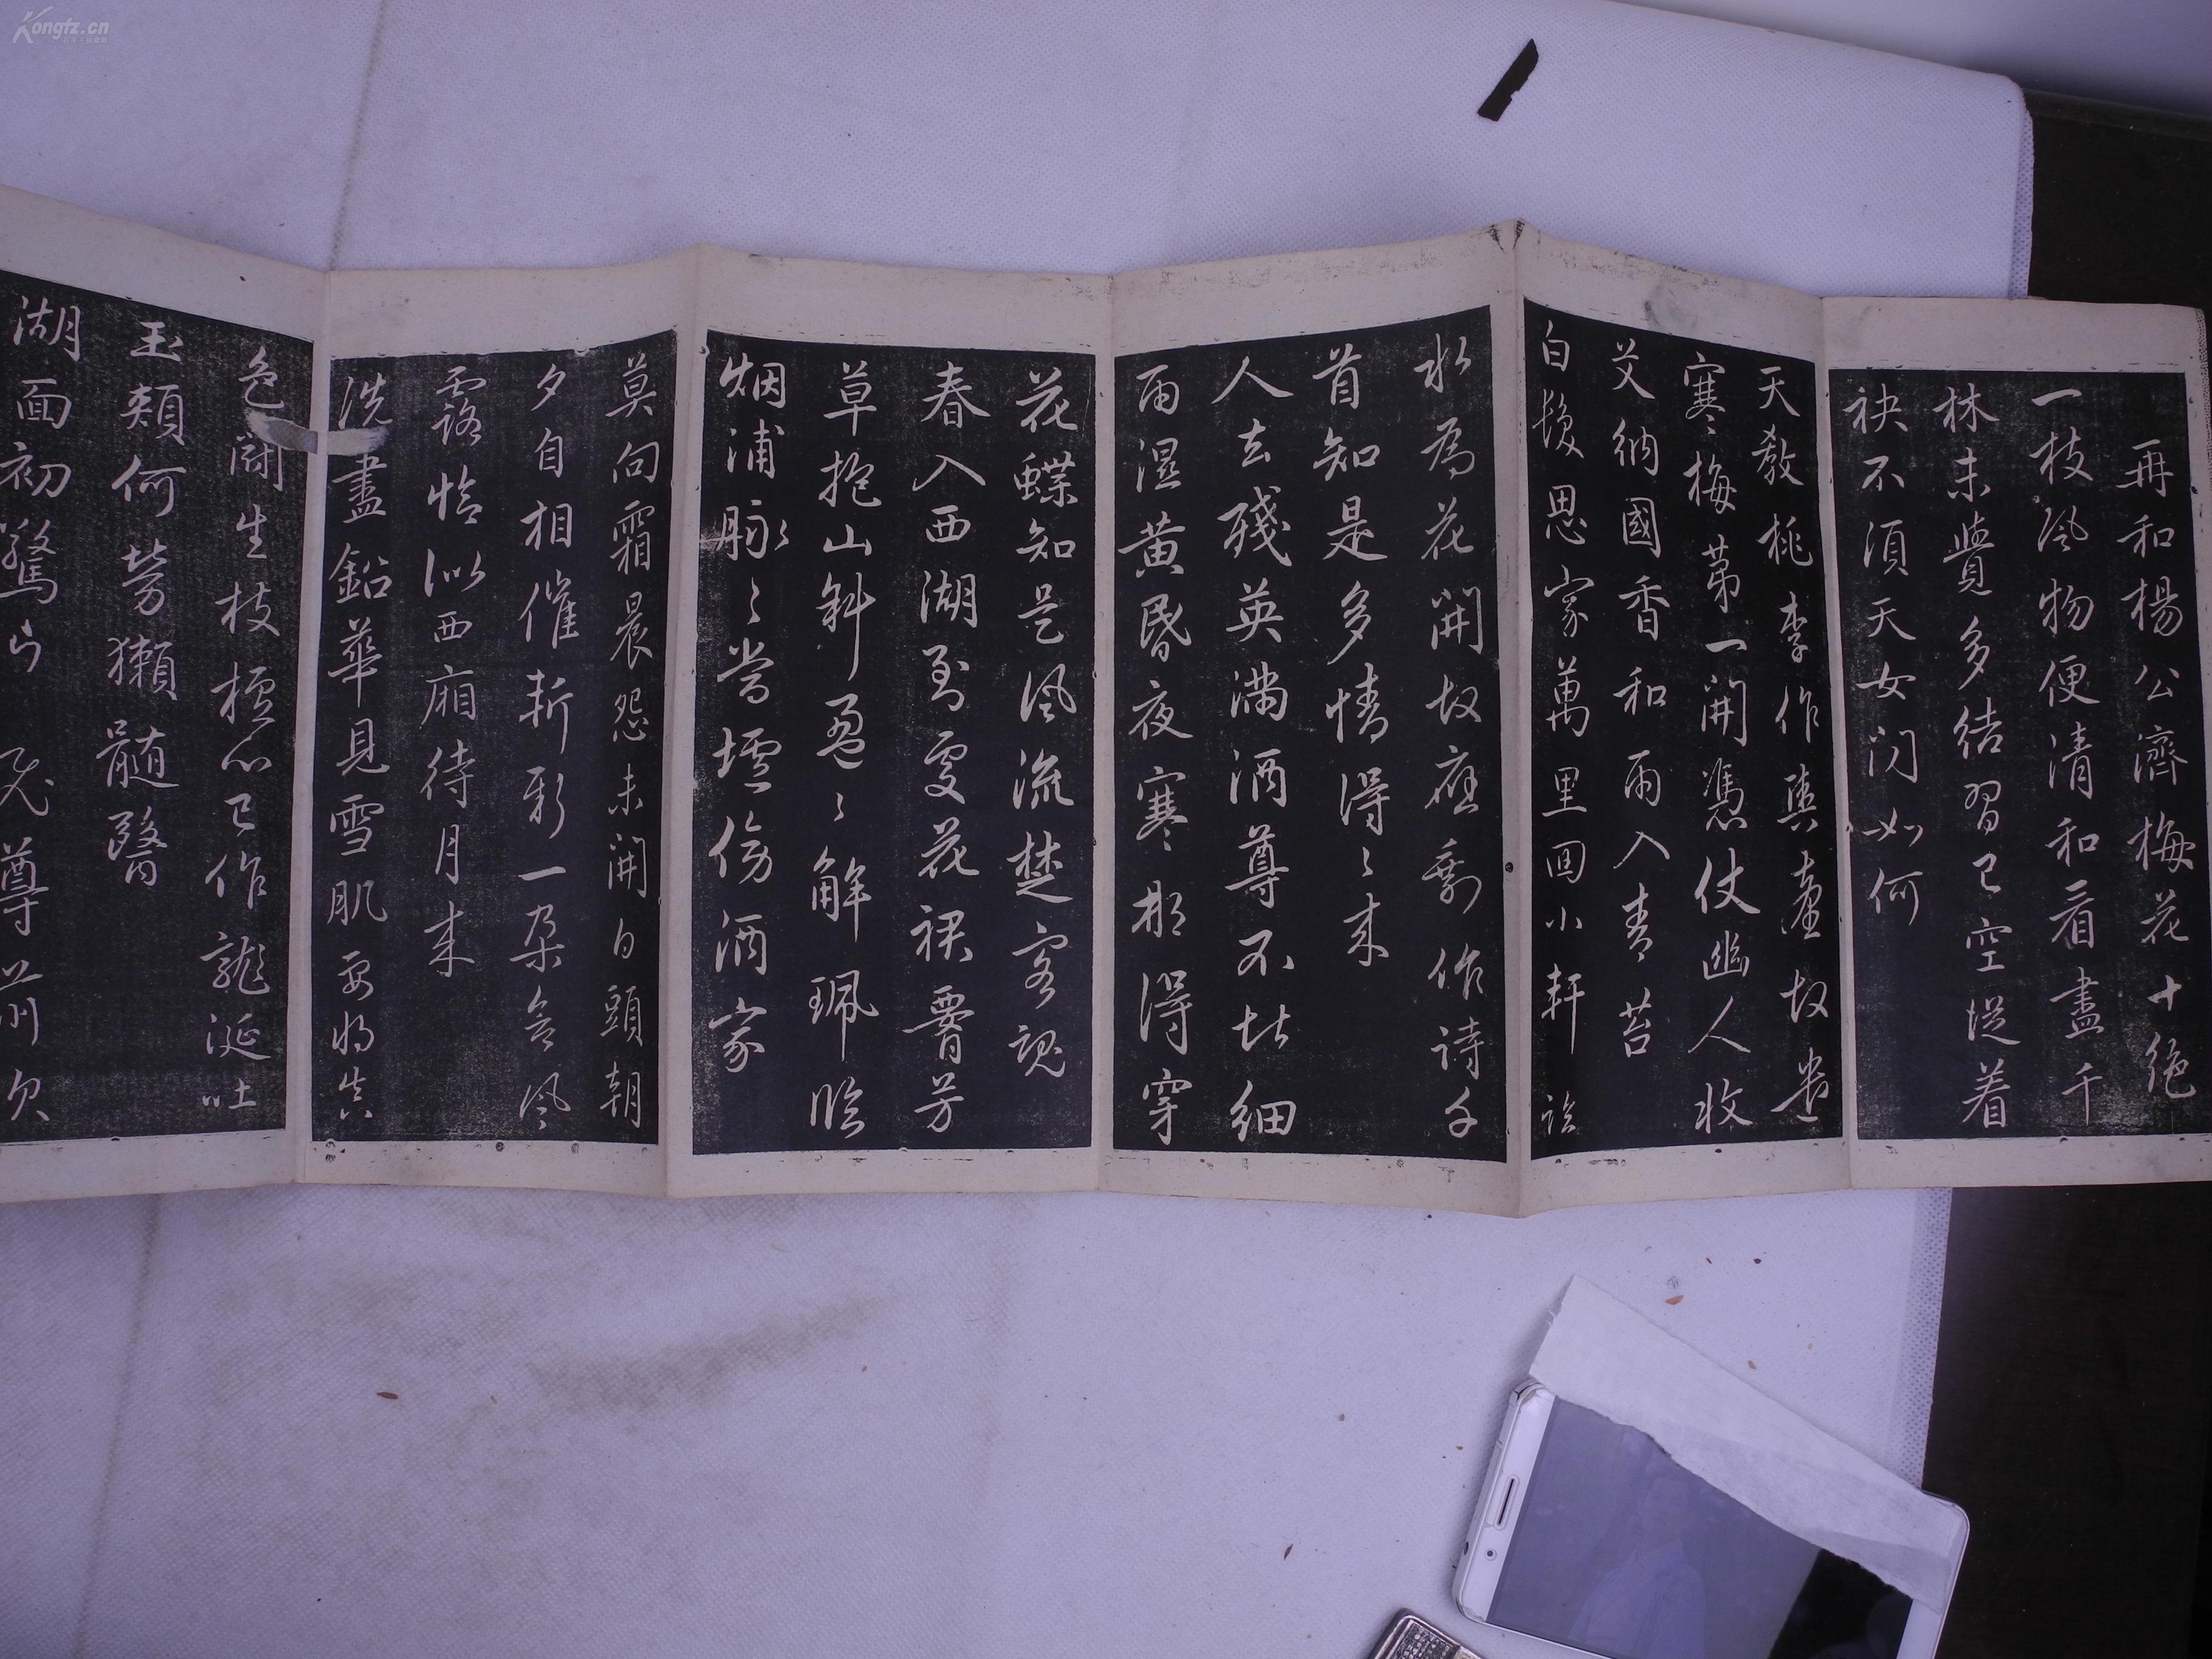 再和楊公濟梅花十絕
一枝風物便清和看盡千
林未覺多結習已空從着
袂不須天女問如何
天教桃李作輿臺故遣
寒梅第一開憑仗幽人收
艾納國香和雨入青苔
白髮思家萬里回小軒
水為花開故應剩作詩千
首知是多情得得來
人去殘英滿酒尊不堪細
雨濕黃昏夜寒那得穿
花蝶知是風流楚客魂
春入西湖到處花裙腰芳
草抱山斜盈盈解珮臨
烟浦脉脉當壚傍酒家
莫向霜晨怨未開白頭朝
夕自相催斬新一朵含風
露恰似西廂待月來
洗盡鉛華見雪肌要將真
色鬪生枝檀心已作龍涎吐
玉頰何勞獺髓醫
湖面初驚片
尊前欠
Kongfz.cn